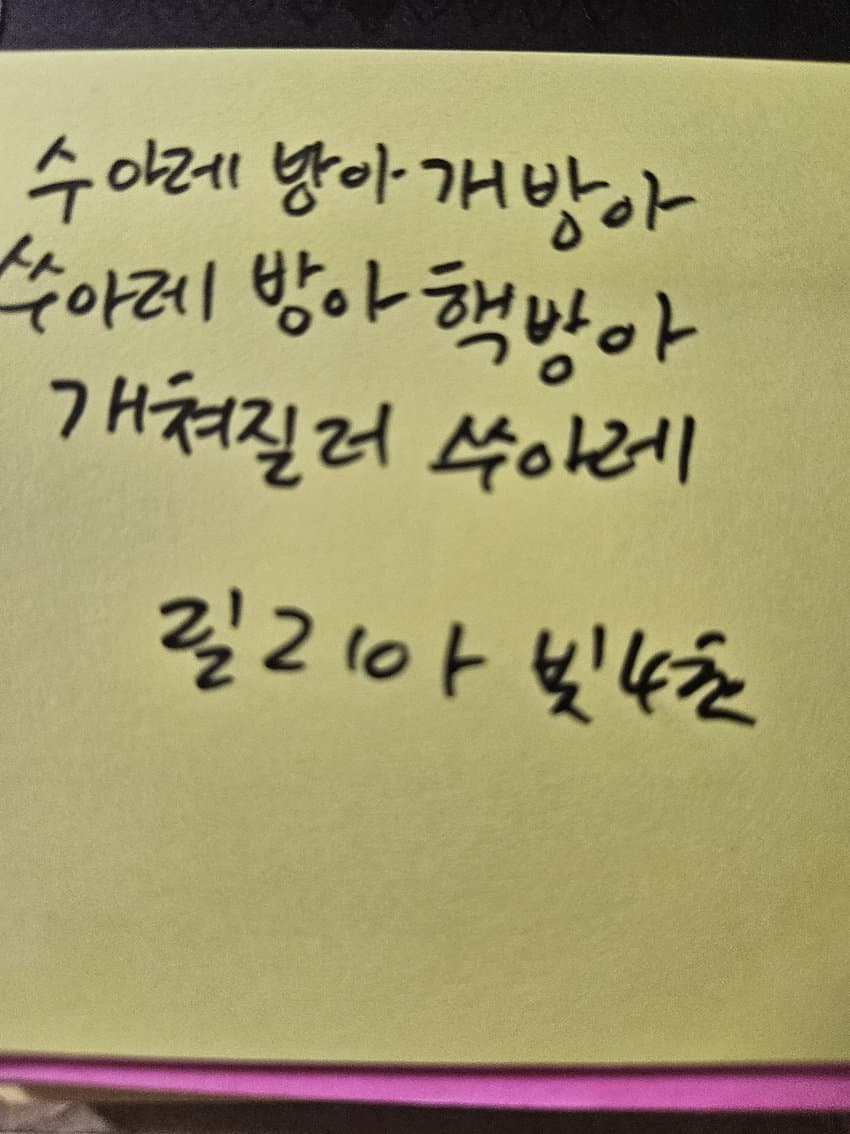 수아레 방아 개방아
쑤아레 방아 핵방아
개쳐질러 쑤아레
릴리아 빛4초